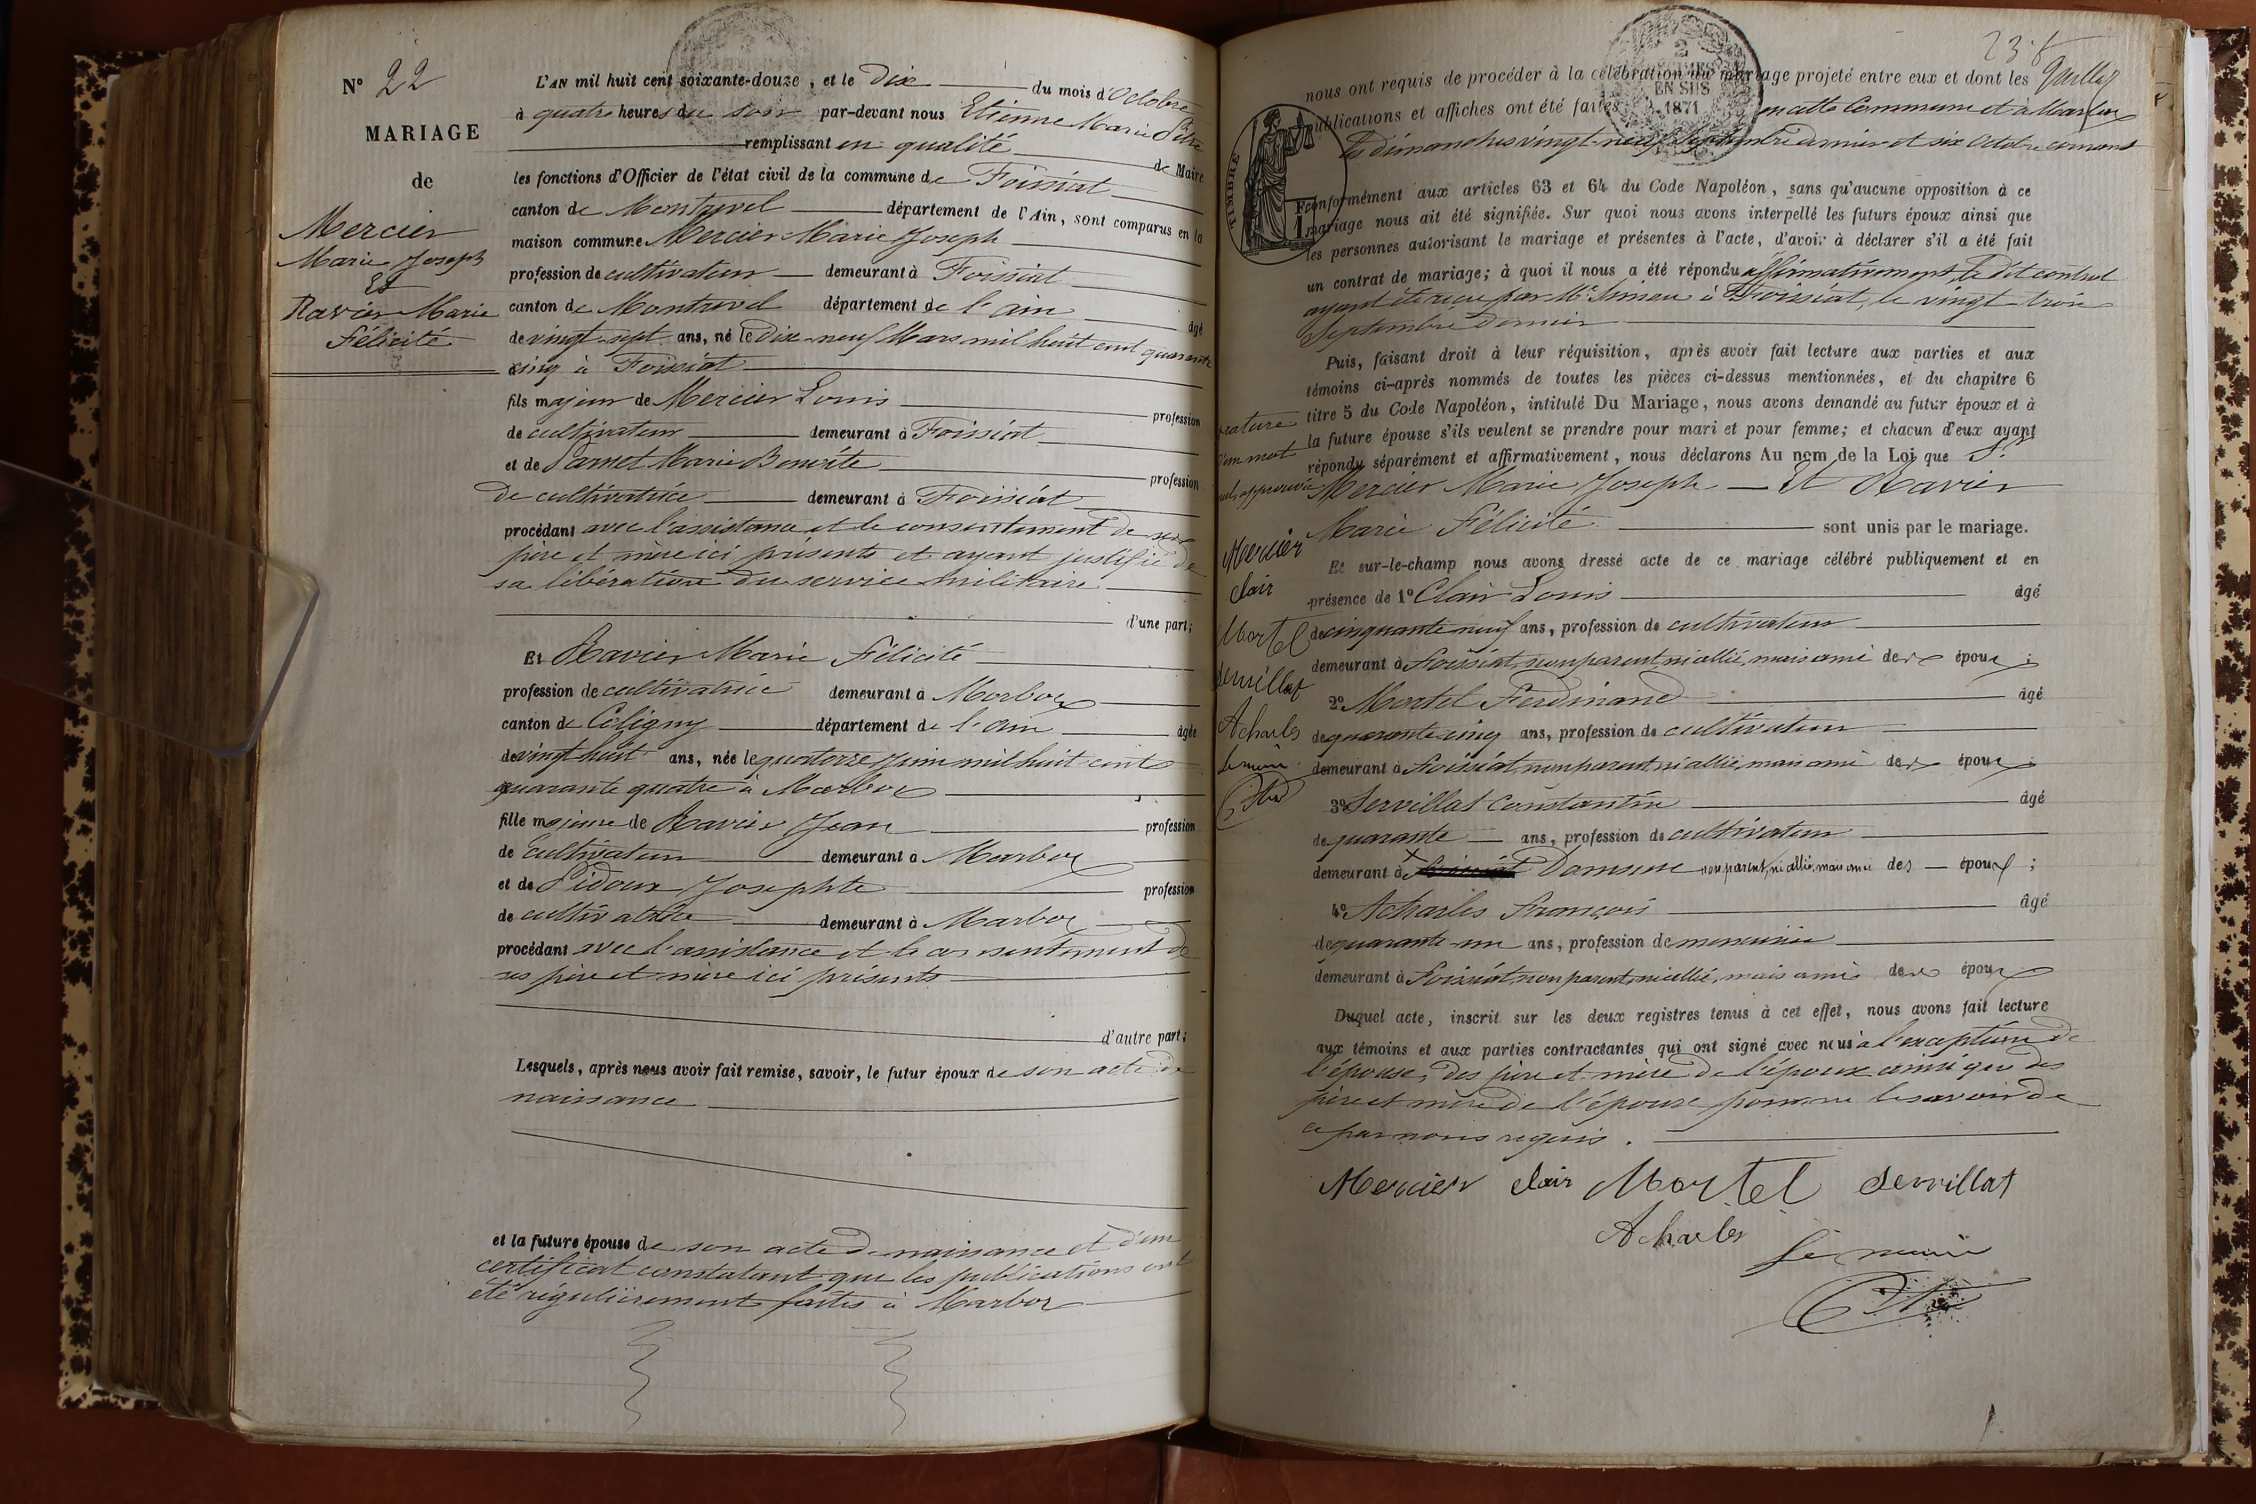 N° 22
MARIAGE
de
Mercier
Marie Joseph
Et
Ravier Marie
Félicité
L'AN mil huit cent soixante-douze, et le dix du mois d'Octobre
à quatre heures du soir par-devant nous Etienne Marie Pitre
remplissant en qualité de Maire
les fonctions d'Officier de l'état civil de la commune de Foissiat
canton de Montrevel département de l'Ain, sont comparus en la
maison commune Mercier Marie Joseph
profession de cultivateur demeurant à Foissiat
canton de Montrevel département de l'ain âgé
de vingt-sept ans, né le dix-neuf Mars mil huit cent quarante
cinq à Foissiat
fils majeur de Mercier Louis profession
de cultivateur demeurant à Foissiat
et de Parnet Marie Benoite profession
de cultivatrice demeurant à Foissiat
procédant avec l'assistance et le consentement de ses
père et mère ici présents et ayant justifié de
sa libération du service militaire
d'une part;
Et Ravier Marie Félicité
profession de cultivatrice demeurant à Marboz
canton de Coligny département de l'ain âgée
de vingt huit ans, née le quatorze Juin mil huit cent
quarante quatre à Marboz
fille majeure de Ravier Jean profession
de cultivateur demeurant à Marboz
et de Pidoux Josephte profession
de cultivatrice demeurant à Marboz
procédant avec l'assistance et le consentement de
ses père et mère ici présents
d'autre part;
Lesquels, après nous avoir fait remise, savoir, le futur époux de son acte de
naissance
et la future épouse de son acte de naissance et d'un
certificat constatant que les publications ont
été régulièrement faites à Marboz
2
EN SUS
1871
TIMBRE
nous ont requis de procéder à la célébration du mariage projeté entre eux et dont les
publications et affiches ont été faites en cette Commune et à Marboz
les dimanches vingt-neuf Septembre dernier et six Octobre courant
conformément aux articles 63 et 64 du Code Napoléon, sans qu'aucune opposition à ce
mariage nous ait été signifiée. Sur quoi nous avons interpellé les futurs époux ainsi que
les personnes autorisant le mariage et présentes à l'acte, d'avoir à déclarer s'il a été fait
un contrat de mariage; à quoi il nous a été répondu affirmativement, le dit contrat
ayant été reçu par Me à Foissiat, le vingt-trois
Septembre dernier
Puis, faisant droit à leur réquisition, après avoir fait lecture aux parties et aux
témoins ci-après nommés de toutes les pièces ci-dessus mentionnées, et du chapitre 6
titre 5 du Code Napoléon, intitulé Du Mariage, nous avons demandé au futur époux et à
la future épouse s'ils veulent se prendre pour mari et pour femme; et chacun d'eux ayant
répondu séparément et affirmativement, nous déclarons Au nom de la Loi que Sr
Mercier Marie Joseph Et Ravier
Marie Félicité sont unis par le mariage.
Et sur-le-champ nous avons dressé acte de ce mariage célébré publiquement et en
présence de 1° Clair Louis âgé
de cinquante neuf ans, profession de cultivateur
demeurant à Foissiat, non parent, ni allié, mais ami des époux;
2° Mortel Ferdinand âgé
de quarante cinq ans, profession de cultivateur
demeurant à Foissiat, non parent, ni allié, mais ami des époux;
3° Servillat Constantin âgé
de quarante ans, profession de cultivateur
demeurant à Domsure non parent, ni allié, mais ami des époux;
4° Acharles François âgé
de quarante-un ans, profession de menuisier
demeurant à Foissiat, non parent, ni allié, mais ami des époux
Duquel acte, inscrit sur les deux registres tenus à cet effet, nous avons fait lecture
aux témoins et aux parties contractantes qui ont signé avec nous à l'exception de
l'épouse, des père et mère de l'époux ainsi que des
père et mère de l'épouse pour ne le savoir de
ce par nous requis.
rature
d'un mot
nul, approuvée
Mercier
clair
Mortel
Servillat
Acharles
le maire
Mercier clair Mortel Servillat
Acharles
le maire